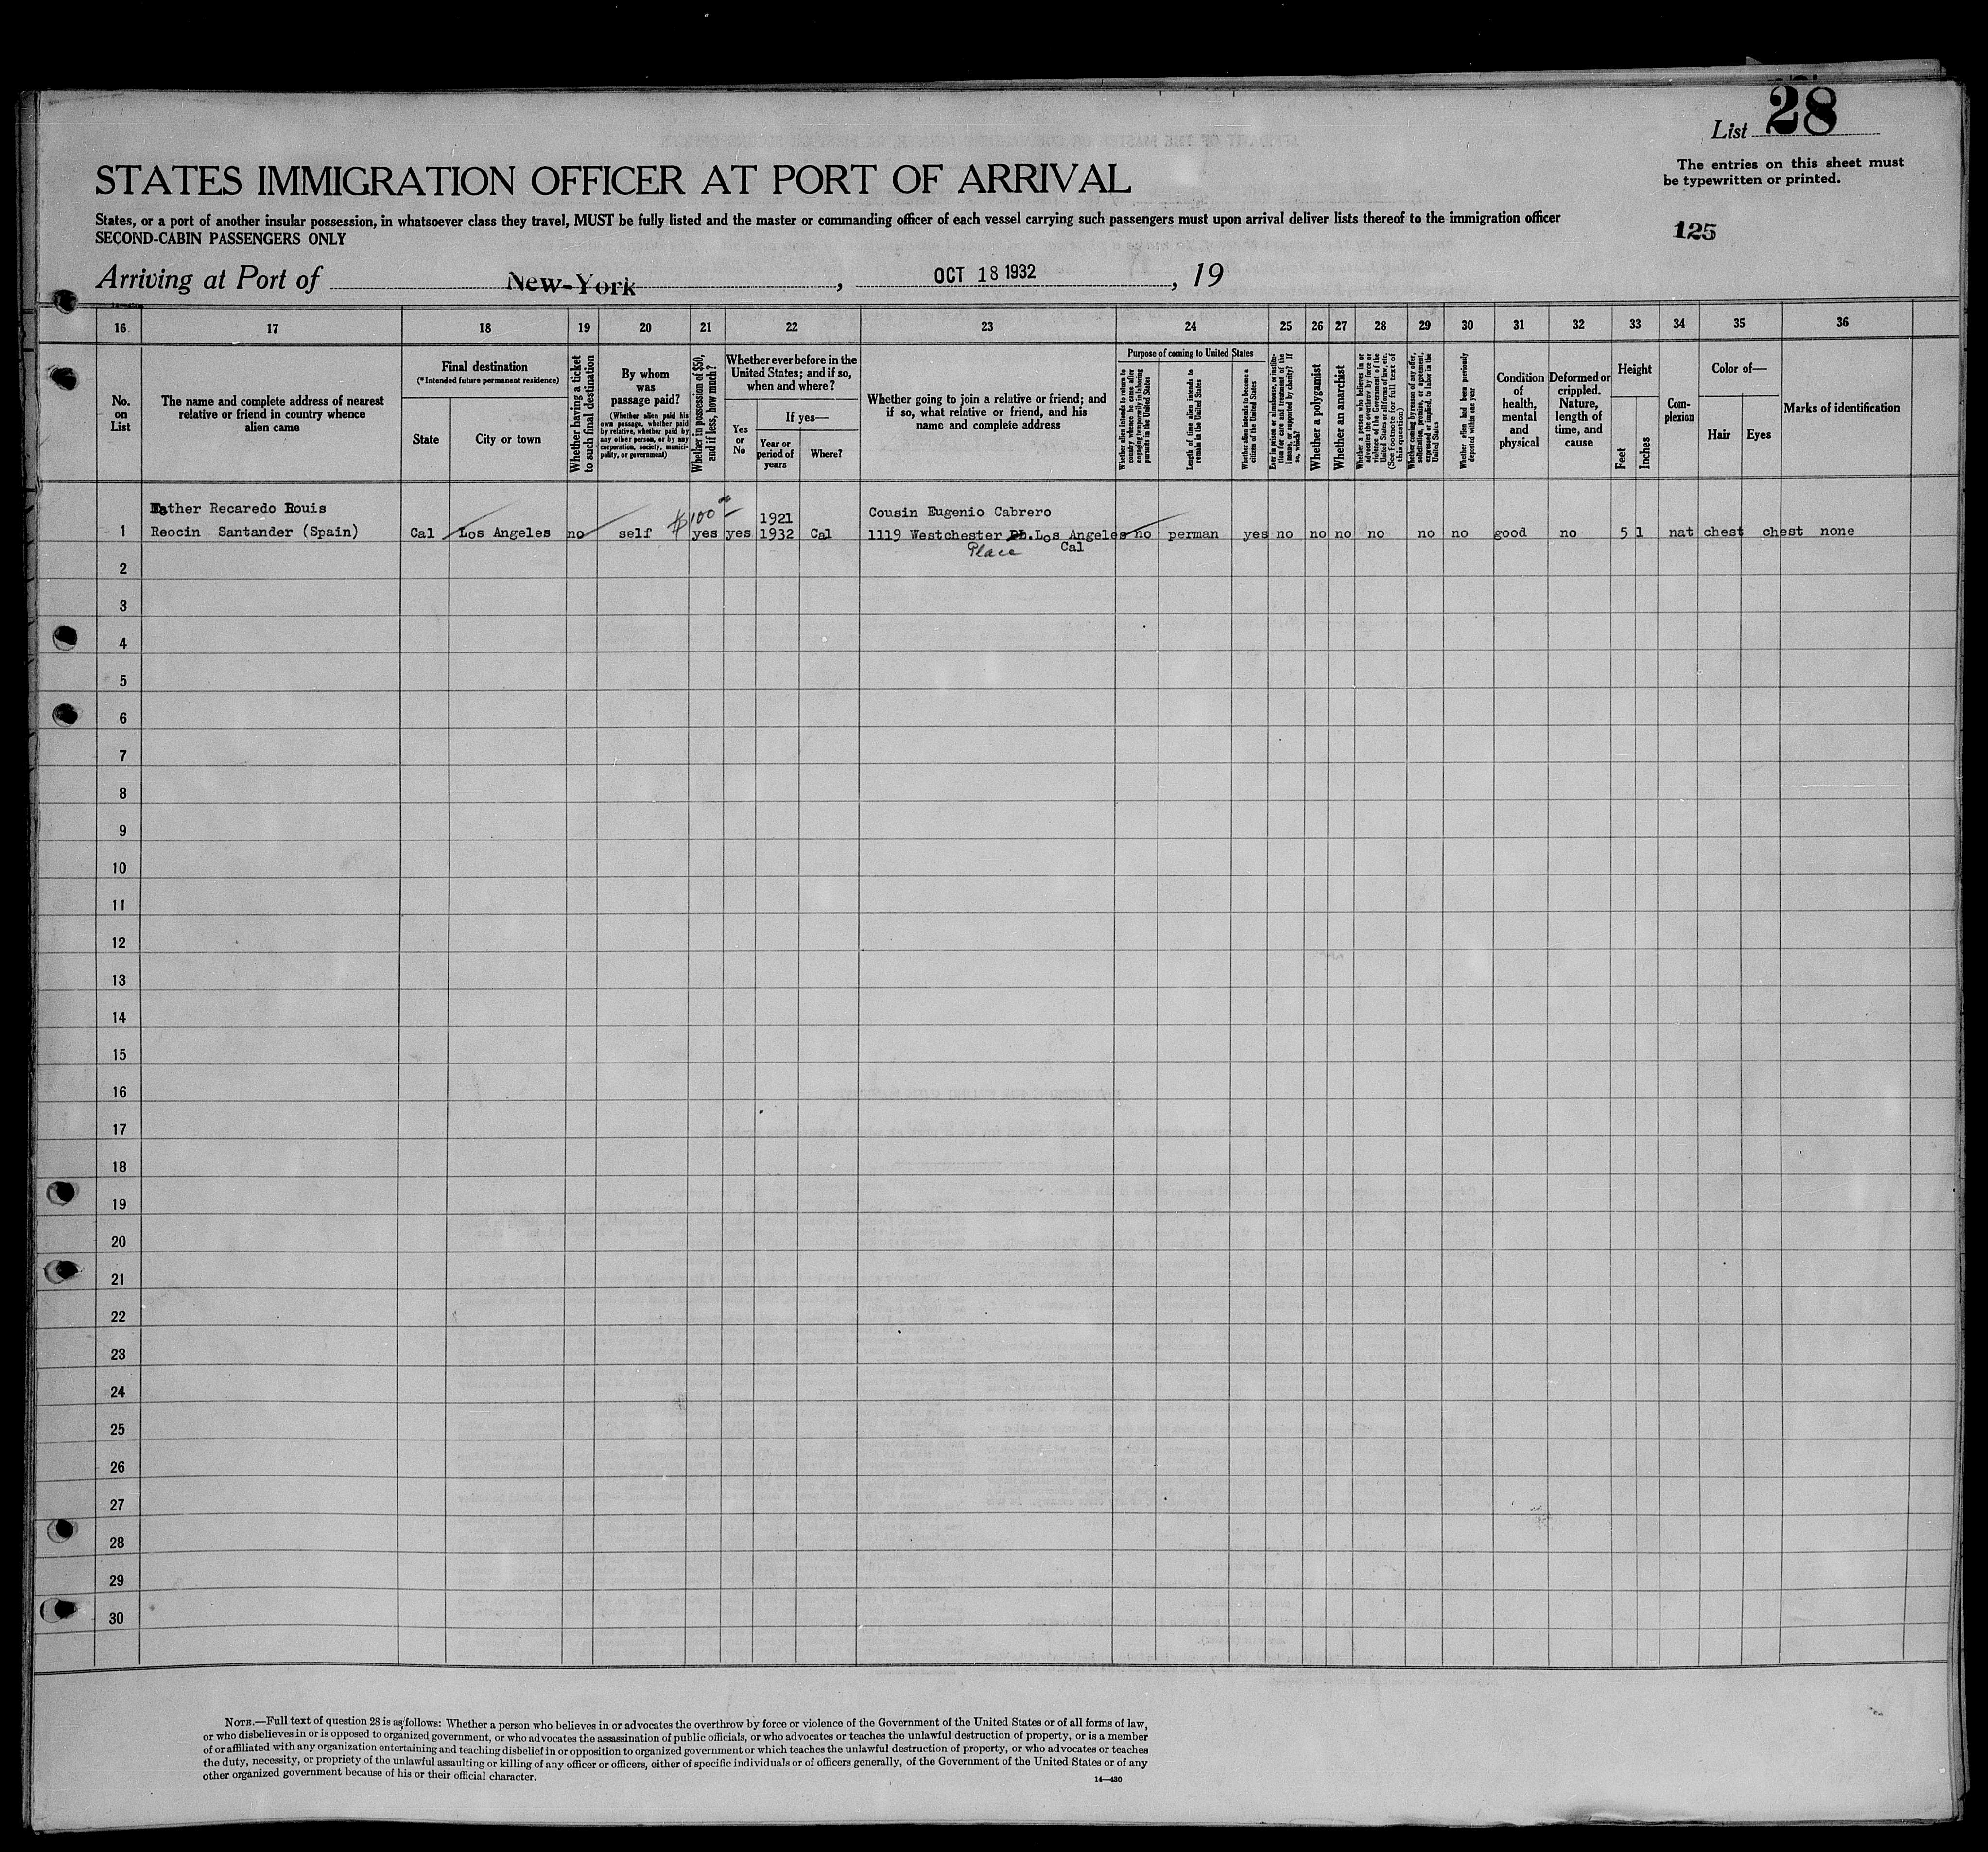 List 28
The entries on this sheet must
be typewritten or printed.
STATES IMMIGRATION OFFICER AT PORT OF ARRIVAL
States, or a port of another insular possession, in whatsoever class they travel, MUST be fully listed and the master or commanding officer of each vessel carrying such passengers must upon arrival deliver lists thereof to the immigration officer
SECOND-CABIN PASSENGERS ONLY
125
Arriving at Port of New-York, OCT 18 1932, 19
16 17 18 19 20 21 22 23 24 25 26 27 28 29 30 31 32 33 34 35 36
No.
on
List
The name and complete address of nearest
relative or friend in country whence
alien came
Final destination
(*Intended future permanent residence)
State
City or town
Whether having a ticket
to such final destination
By whom
was
passage paid?
(Whether alien paid his
own passage, whether paid
by relative, whether paid by
any other person, or by any
corporation, society, munici-
pality, or government)
Whether in possession of $50,
and if less, how much?
Whether ever before in the
United States; and if so,
when and where?
Yes
or
No
If yes—
Year or
period of
years
Where?
Whether going to join a relative or friend; and
if so, what relative or friend, and his
name and complete address
Purpose of coming to United States
Whether alien intends to return to
country whence he came after
engaging temporarily in laboring
pursuits in the United States
Length of time alien intends to
remain in the United States
Whether alien intends to become a
citizen of the United States
Ever in prison or almshouse, or institu-
tion for care and treatment of the
insane, or supported by charity? If
so, which?
Whether a polygamist
Whether an anarchist
Whether a person who believes in or
advocates the overthrow by force or
violence of the Government of the
United States or all forms of law, etc.
(See footnote for full text of
this question)
Whether coming by reason of any offer,
solicitation, promise, or agreement,
expressed or implied, to labor in the
United States
Whether alien had been previously
deported within one year
Condition
of
health,
mental
and
physical
Deformed or
crippled.
Nature,
length of
time, and
cause
Height
Feet
Inches
Com-
plexion
Color of—
Hair
Eyes
Marks of identification
Father Recaredo Rouis $100 1921 Cousin Eugenio Cabrero
1 Reocin Santander (Spain) Cal Los Angeles no self yes yes 1932 Cal 1119 Westchester Pl. Los Angeles no perman yes no no no no no no good no 5 1 nat chest chest none
Place Cal
2
3
4
5
6
7
8
9
10
11
12
13
14
15
16
17
18
19
20
21
22
23
24
25
26
27
28
29
30
NOTE.—Full text of question 28 is as follows: Whether a person who believes in or advocates the overthrow by force or violence of the Government of the United States or of all forms of law,
or who disbelieves in or is opposed to organized government, or who advocates the assassination of public officials, or who advocates or teaches the unlawful destruction of property, or is a member
of or affiliated with any organization entertaining and teaching disbelief in or opposition to organized government or which teaches the unlawful destruction of property, or who advocates or teaches
the duty, necessity, or propriety of the unlawful assaulting or killing of any officer or officers, either of specific individuals or of officers generally, of the Government of the United States or of any
other organized government because of his or their official character.
14—430